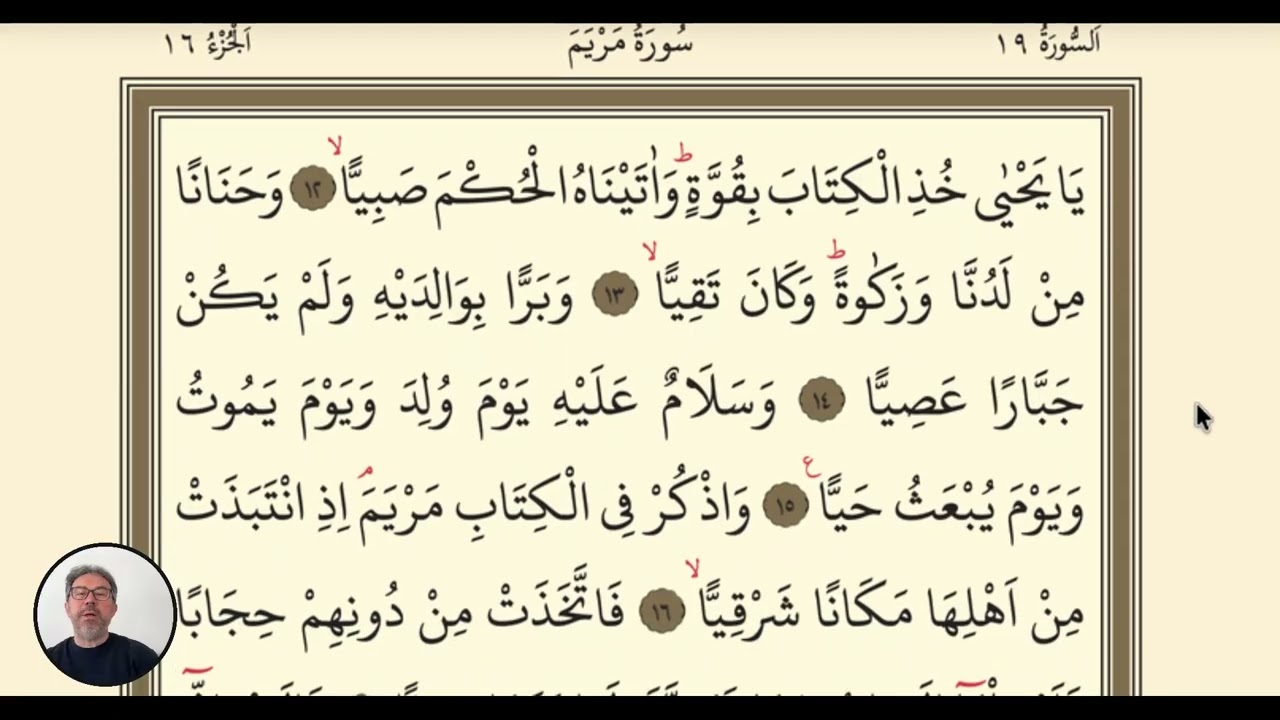 اَلسُّورَةُ ١٩ سُورَةُ مَرْيَمَ اَلْجُزْءُ ١٦
يَا يَحْيٰى خُذِ الْكِتَابَ بِقُوَّةٍ ؕ وَاٰتَيْنَاهُ الْحُكْمَ صَبِيًّا ۙ ١٢ وَحَنَانًا
مِنْ لَدُنَّا وَزَكٰوةً ؕ وَكَانَ تَقِيًّا ۙ ١٣ وَبَرًّا بِوَالِدَيْهِ وَلَمْ يَكُنْ
جَبَّارًا عَصِيًّا ١٤ وَسَلَامٌ عَلَيْهِ يَوْمَ وُلِدَ وَيَوْمَ يَمُوتُ
وَيَوْمَ يُبْعَثُ حَيًّا ع ١٥ وَاذْكُرْ فِى الْكِتَابِ مَرْيَمَ ۢ اِذِ انْتَبَذَتْ
مِنْ اَهْلِهَا مَكَانًا شَرْقِيًّا ۙ ١٦ فَاتَّخَذَتْ مِنْ دُونِهِمْ حِجَابًا